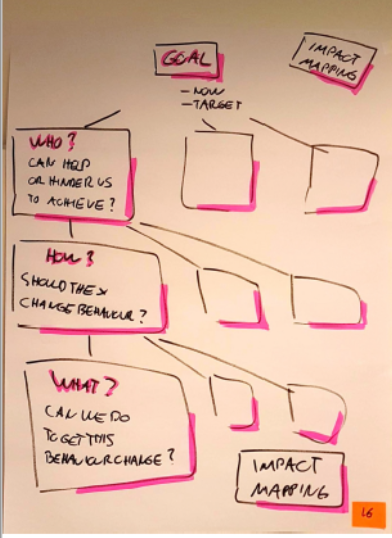 GOAL
IMPACT
MAPPING
- NOW
- TARGET
WHO?
CAN HELP
OR HINDER US
TO ACHIEVE?
HOW?
SHOULD THEY
CHANGE BEHAVIOUR?
WHAT?
CAN WE DO
TO GET THIS
BEHAVIOUR CHANGE?
IMPACT
MAPPING
16